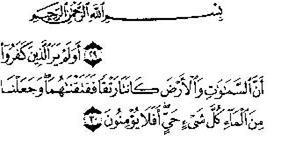 بِسْمِ ٱللَّهِ ٱلرَّحْمَٰنِ ٱلرَّحِيمِ
۝٢٩ أَوَلَمْ يَرَ ٱلَّذِينَ كَفَرُوٓا۟
أَنَّ ٱلسَّمَٰوَٰتِ وَٱلْأَرْضَ كَانَتَا رَتْقًا فَفَتَقْنَٰهُمَا ۖ وَجَعَلْنَا
مِنَ ٱلْمَآءِ كُلَّ شَىْءٍ حَىٍّ ۖ أَفَلَا يُؤْمِنُونَ ۝٣٠